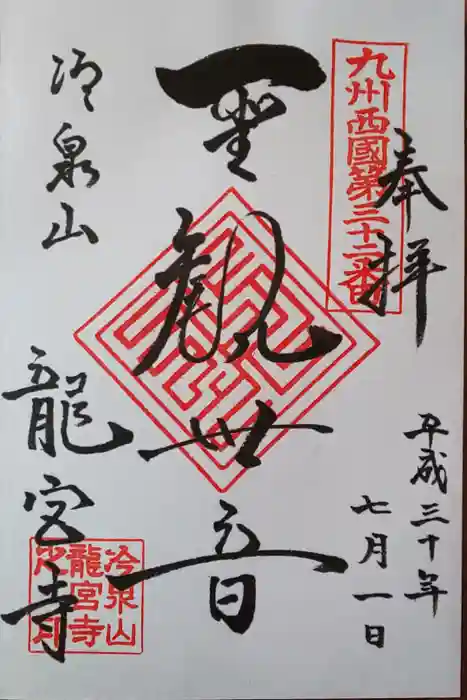 九州西國第三十二番
奉拝
平成三十年
七月一日
聖観世音
冷泉山
龍宮寺
冷泉山
龍宮寺